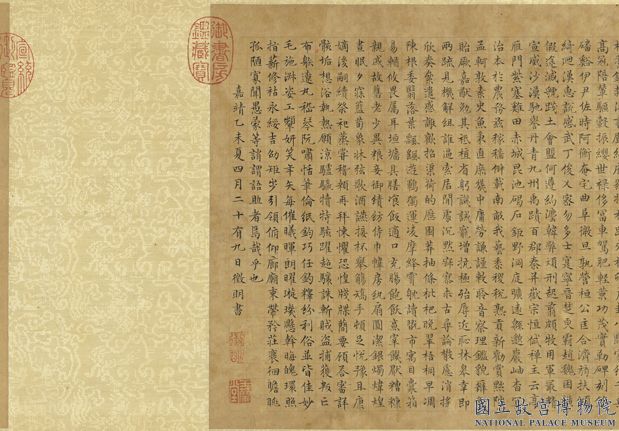 高冠陪輦驅轂振纓世祿侈富車駕肥輕策功茂實勒碑刻銘
磻溪伊尹佐時阿衡奄宅曲阜微旦孰營桓公匡合濟弱扶傾
綺迴漢惠說感武丁俊乂密勿多士寔寧晉楚更霸趙魏困橫
假途滅虢踐土會盟何遵約法韓弊煩刑起翦頗牧用軍最精
宣威沙漠馳譽丹青九州禹蹟百郡秦并嶽宗恒岱禪主云亭
雁門紫塞雞田赤城昆池碣石鉅野洞庭曠遠緜邈巖岫杳冥
治本於農務茲稼穡俶載南畝我藝黍稷稅熟貢新勸賞黜陟
孟軻敦素史魚秉直庶幾中庸勞謙謹敕聆音察理鑑貌辨色
貽厥嘉猷勉其祗植省躬譏誡寵增抗極殆辱近恥林皋幸即
兩疏見機解組誰逼索居閑處沉默寂寥求古尋論散慮逍遙
欣奏累遣慼謝歡招渠荷的歷園莽抽條枇杷晚翠梧桐早凋
陳根委翳落葉飄颻遊鵾獨運凌摩絳霄耽讀翫市寓目囊箱
易輶攸畏屬耳垣墻具膳飡飯適口充腸飽飫烹宰飢厭糟糠
親戚故舊老少異粮妾御績紡侍巾帷房紈扇圓潔銀燭煒煌
晝眠夕寐藍筍象床弦歌酒讌接杯舉觴矯手頓足悅豫且康
嫡後嗣續祭祀蒸嘗稽顙再拜悚懼恐惶牋牒簡要顧答審詳
骸垢想浴執熱願涼驢騾犢特駭躍超驤誅斬賊盜捕獲叛亡
布射遼丸嵇琴阮嘯恬筆倫紙鈞巧任釣釋紛利俗並皆佳妙
毛施淑姿工顰妍笑年矢每催曦暉朗曜璇璣懸斡晦魄環照
指薪修祜永綏吉劭矩步引領俯仰廊廟束帶矜莊徘徊瞻眺
孤陋寡聞愚蒙等誚謂語助者焉哉乎也
嘉靖乙未夏四月二十有九日徵明書
御書房鑑藏寶
國立故宮博物院
NATIONAL PALACE MUSEUM